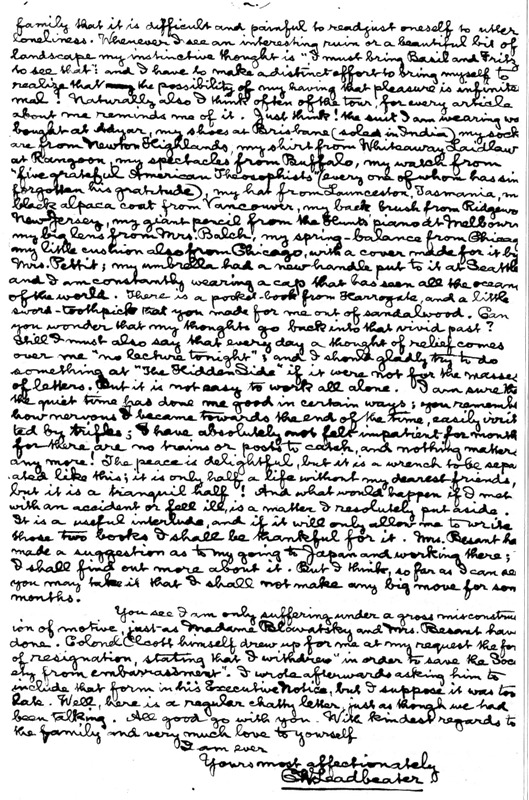 family that it is difficult and painful to readjust oneself to utter
loneliness. Whenever I see an interesting ruin or a beautiful bit of
landscape my instinctive thought is "I must bring Basil and Fritz
to see that": and I have to make a distinct effort to bring myself to
realize that the possibility of my having that pleasure is infinites
mal! Naturally also I think often of the tour, for every article
about me reminds me of it. Just think! the suit I am wearing we
bought at Adyar, my shoes at Brisbane (soled in India) my sock
are from Newton Highlands, my shirt from Whiteaway Laidlaw
at Rangoon, my spectacles from Buffalo, my watch from
"five grateful American Theosophists" (every one of whom has sin
forgotten his gratitude), my hat from Launceston, Tasmania, m
black alpaca coat from Vancouver, my back brush from Ridgewo
New Jersey, my giant pencil from the Hunts' piano at Melbourn
my big lens from Mrs. Balch, my spring-balance from Chicag
my little cushion also from Chicago, with a cover made for it by
Mrs. Pettit; my umbrella had a new handle put to it at Seattle
and I am constantly wearing a cap that has seen all the ocean
of the world. There is a pocket-book from Harrogate, and a little
sword-toothpick that you made for me out of sandalwood. Can
you wonder that my thoughts go back into that vivid past?
Still I must also say that every day a thought of relief comes
over me "no lecture tonight"; and I should gladly try to do
something at "The Hidden Side" if it were not for the masses
of letters. But it is not easy to work all alone. I am sure th
the quiet time has done me good in certain ways; you remembe
how nervous I became towards the end of the time, easily irrit
ted by trifles; I have absolutely not felt impatient for month
for there are no trains or posts to catch, and nothing matter
any more! The peace is delightful, but it is a wrench to be sepa
ated like this; it is only half a life without my dearest friends,
but it is a tranquil half! And what would happen if I met
with an accident or fell ill, is a matter I resolutely put aside.
It is a useful interlude, and if it will only allow me to write
those two books I shall be thankful for it. Mrs. Besant ha
made a suggestion as to my going to Japan and working there;
I shall find out more about it. But I think, so far as I can se
you may take it that I shall not make any big move for som
months.
You see I am only suffering under a gross misconstru
ion of motive, just as Madame Blavatsky and Mrs. Besant hav
done. Colonel Olcott himself drew up for me at my request the for
of resignation, stating that I withdrew "in order to save the Soci
ety from embarrassment". I wrote afterwards asking him to
include that form in his Executive Notice, but I suppose it was too
late. Well, here is a regular chatty letter, just as though we had
been talking. All good go with you. With kindest regards to
the family and very much love to yourself
I am ever
Yours most affectionately
C.W. Leadbeater